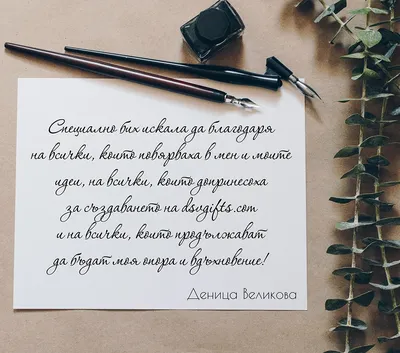 Специално бих искала да благодаря
на всички, които повярваха в мен и моите
идеи, на всички, които допринесоха
за създаването на dsvgifts.com
и на всички, които продължават
да бъдат моя опора и вдъхновение!
Деница Великова